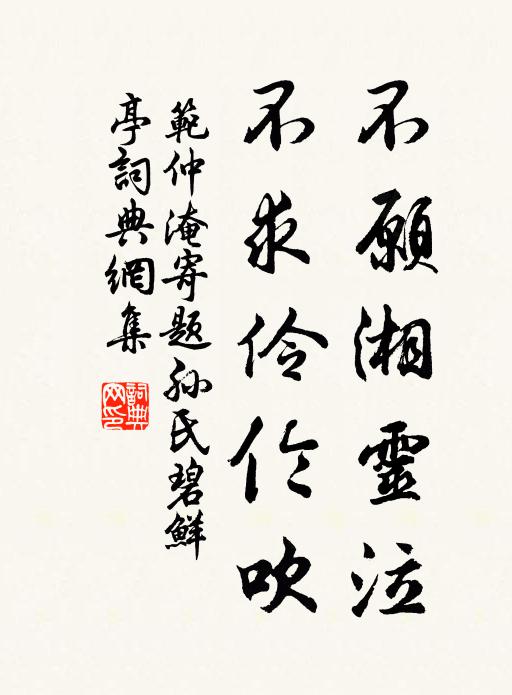 不願湘靈泣
不求伶伦吹
範仲淹寄題孙氏碧鮮
亭詞典網集
詞典
网印